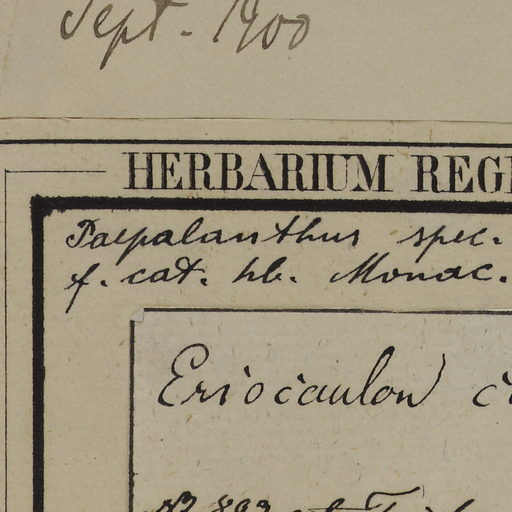 Sept. 1900
HERBARIUM REGI
Paepalanthus spec.
f. cat. hb. Monac.
Eriocaulon